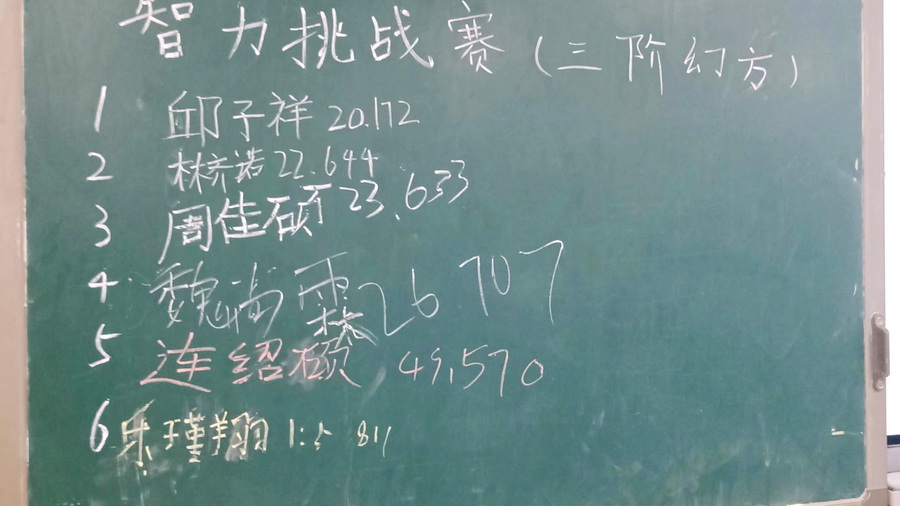 智力挑战赛(三阶幻方)
1 邱子祥 20.172
2 林齐诺 22.644
3 周佳硕 23.633
4 魏 霖 26.707
5 连绍硕 49.570
6 乐瑾翔 811